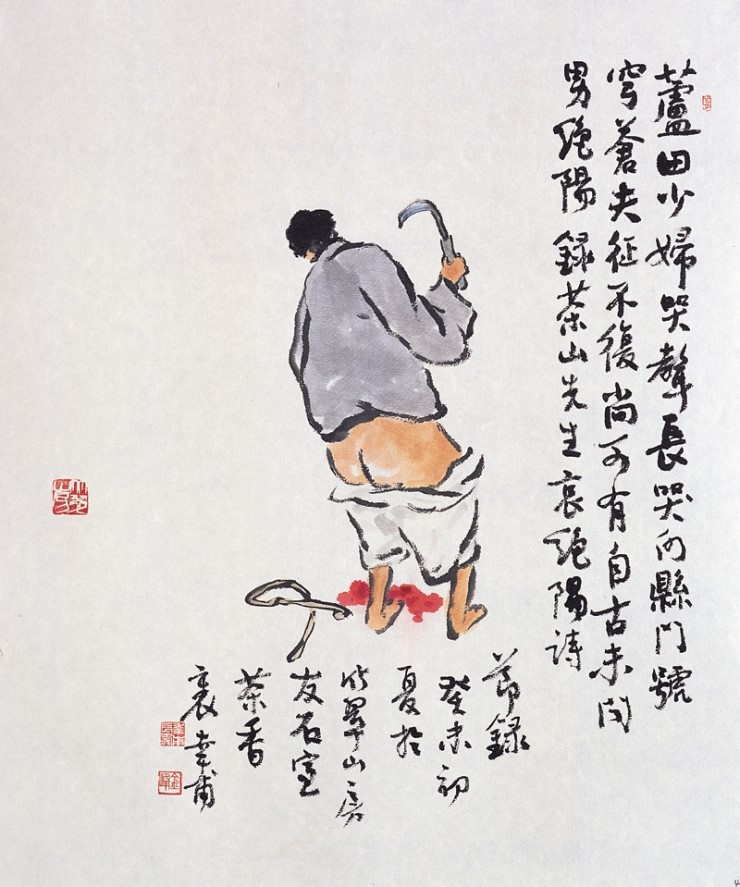 蘆田少婦哭聲長哭向縣門號
穹蒼夫征不復尚可有自古未聞
男絶陽 錄茶山先生哀絶陽詩
節錄
癸未初
夏於
翠山房
友石室
茶香
裏幸甫